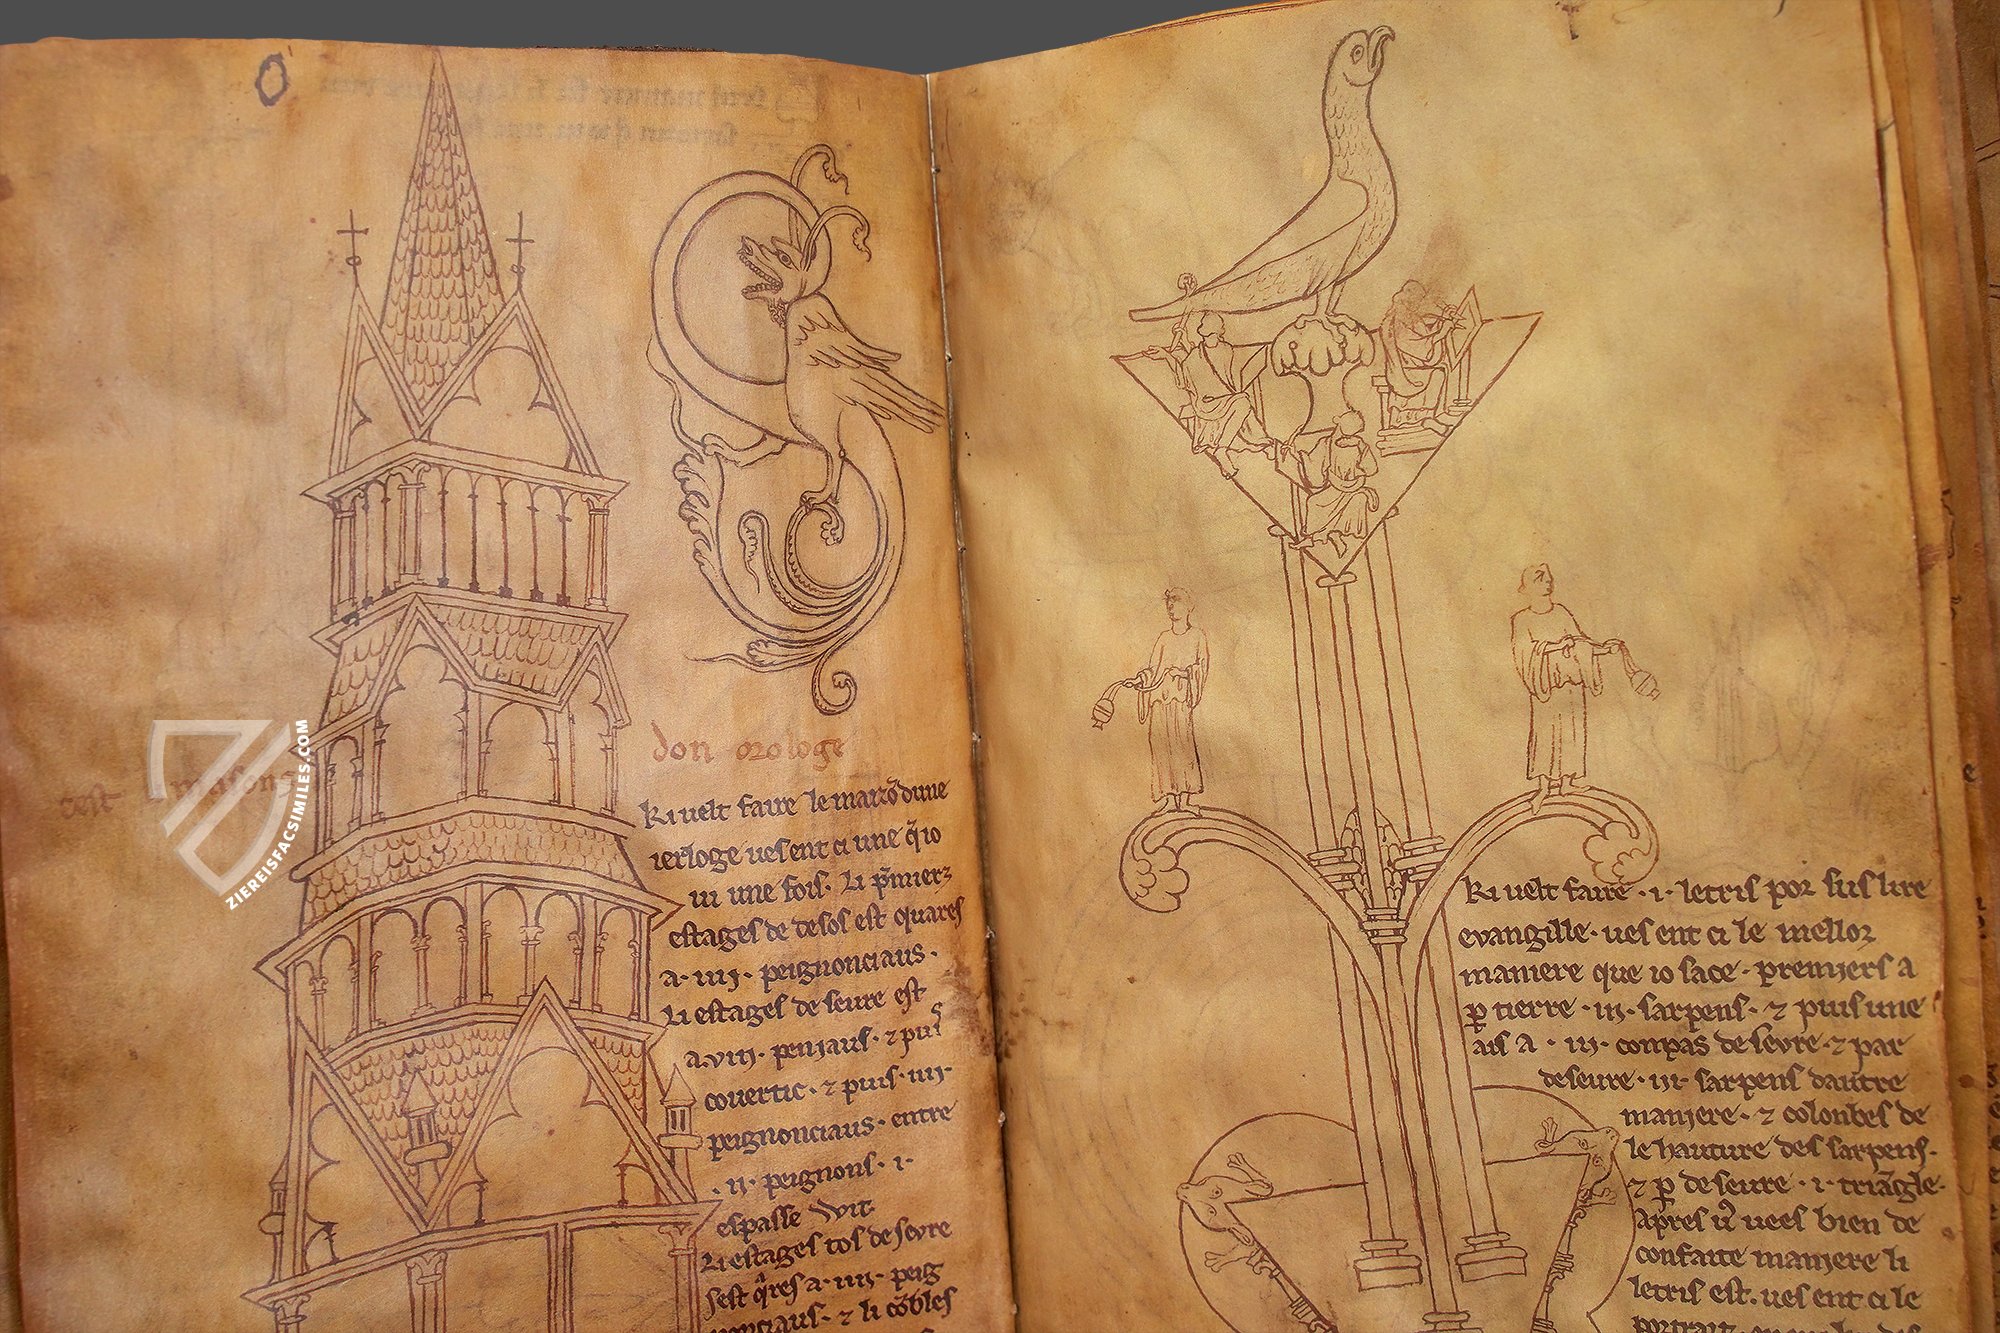 cest masons
ZIEREISFACSIMILES.COM
don orologe
Ki velt faire le maizõ dune
ierloge vesent ci une q̃ io
vi une fois. Li p̃miers
estages de desos est quares
a · iiij · peignonciaus ·
Li estages de seure est
a · viij · peniaus · ⁊ puis
covertic · ⁊ puis · iiij ·
peignonciaus · entre
· ij · peignons · i ·
espasse wit
Li estages tos desevre
sest q̃res a · iiij · peig
nonciaus · ⁊ li cõbles
Ki velt faire · i · letris por sus lire
evangille · ves ent ci le mellor
maniere que io sace · premiers a
p̱ tierre · iij · sarpens · ⁊ puis une
ais a · iij · conpas desevre · ⁊ par
deseure · iij · sarpens dautre
maniere · ⁊ colonbes de
le hauture des sarpens ·
⁊ p̱ deseure · i · triãgle ·
apres vͦ vees bien de
confaite maniere li
letris est. ves ent ci le
portrait